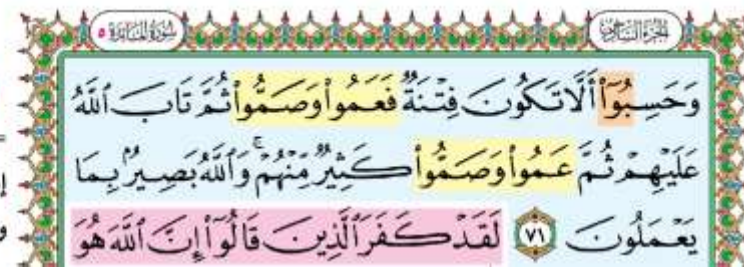 الجزء السادس
سورة المائدة ٥
وَحَسِبُوٓا۟ أَلَّا تَكُونَ فِتْنَةٌ فَعَمُوا۟ وَصَمُّوا۟ ثُمَّ تَابَ ٱللَّهُ
عَلَيْهِمْ ثُمَّ عَمُوا۟ وَصَمُّوا۟ كَثِيرٌ مِّنْهُمْ ۚ وَٱللَّهُ بَصِيرٌۢ بِمَا
يَعْمَلُونَ ٧١ لَقَدْ كَفَرَ ٱلَّذِينَ قَالُوٓا۟ إِنَّ ٱللَّهَ هُوَ